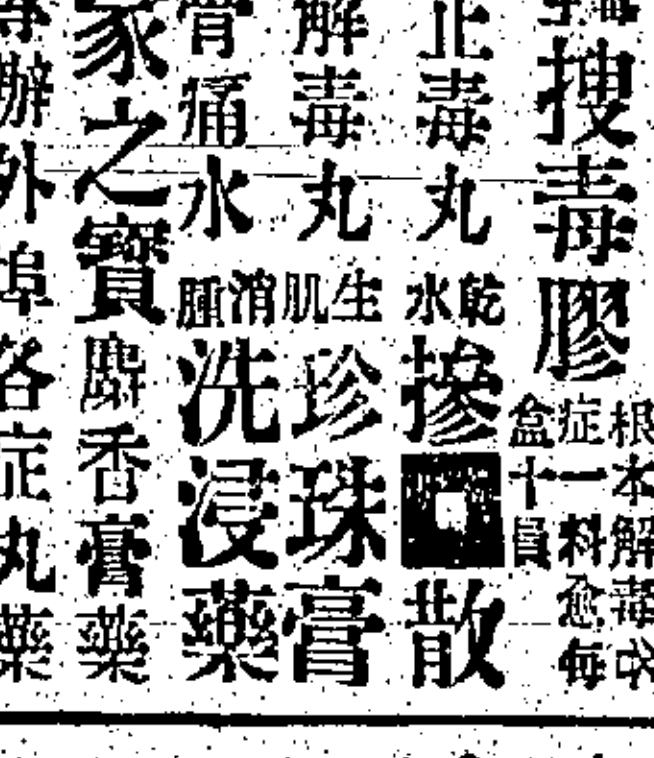 搜毒膠
根本解毒
症一料愈每
盒十員
止毒丸
乾水
摻 散
解毒丸
生肌
珍珠膏
骨痛水
消腫
洗浸藥
家之寶
麝香膏藥
辦外埠各症丸藥